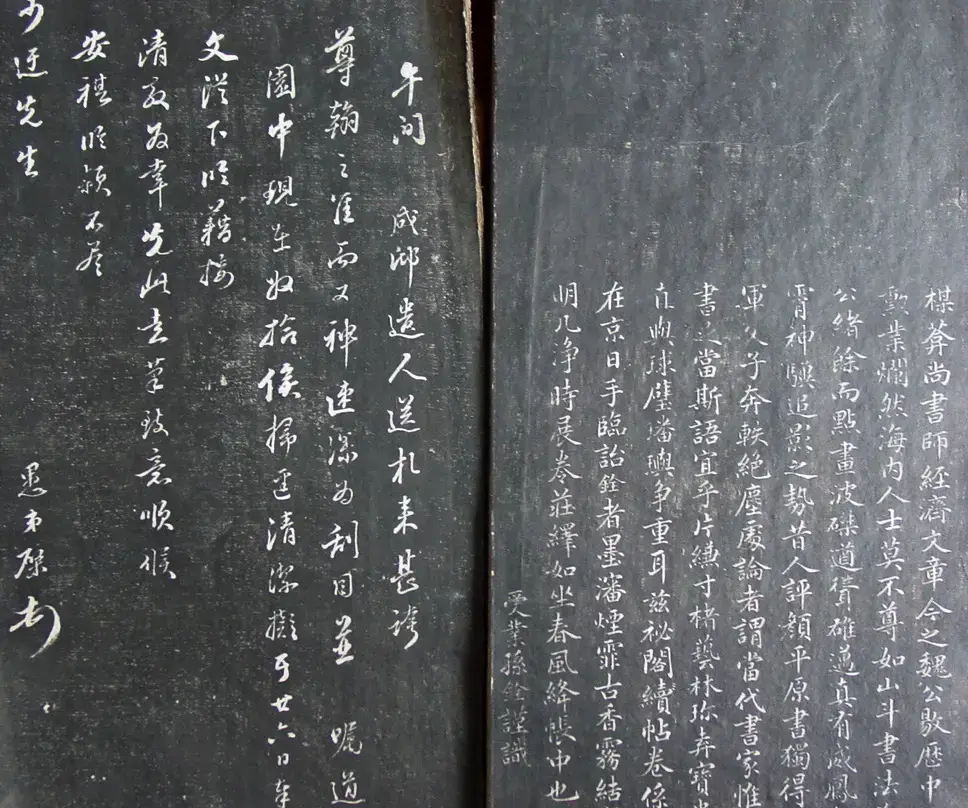 楳葊尚書師經濟文章今之魏公敭歷中
勳業爛然海内人士莫不尊如山斗書法
公緒餘而點畫波磔遒賛確邁真有威鳳
霄神驥追影之勢昔人評顏平原書獨得
軍父子奔軼絕塵處論者謂當代書家惟
書足當斯語宜乎片縑寸楮藝林珍弆寶
直與球璧璠璵爭重耳茲祕閣續帖卷係
在京日手臨詒銓者墨瀋煙霏古香霧結
明几淨時展卷莊繹如坐春風絳帳中也
受業孫銓謹識
午間 成邸遣人送札來甚誇
尊翰之准而又神速深為刮目並 囑道
園中現在收拾俟掃逕清潔擬于廿六日奉
文從下臨藉接
清教為幸先此走筆致意順候
安祺臨穎不尽
少迂先生
愚弟